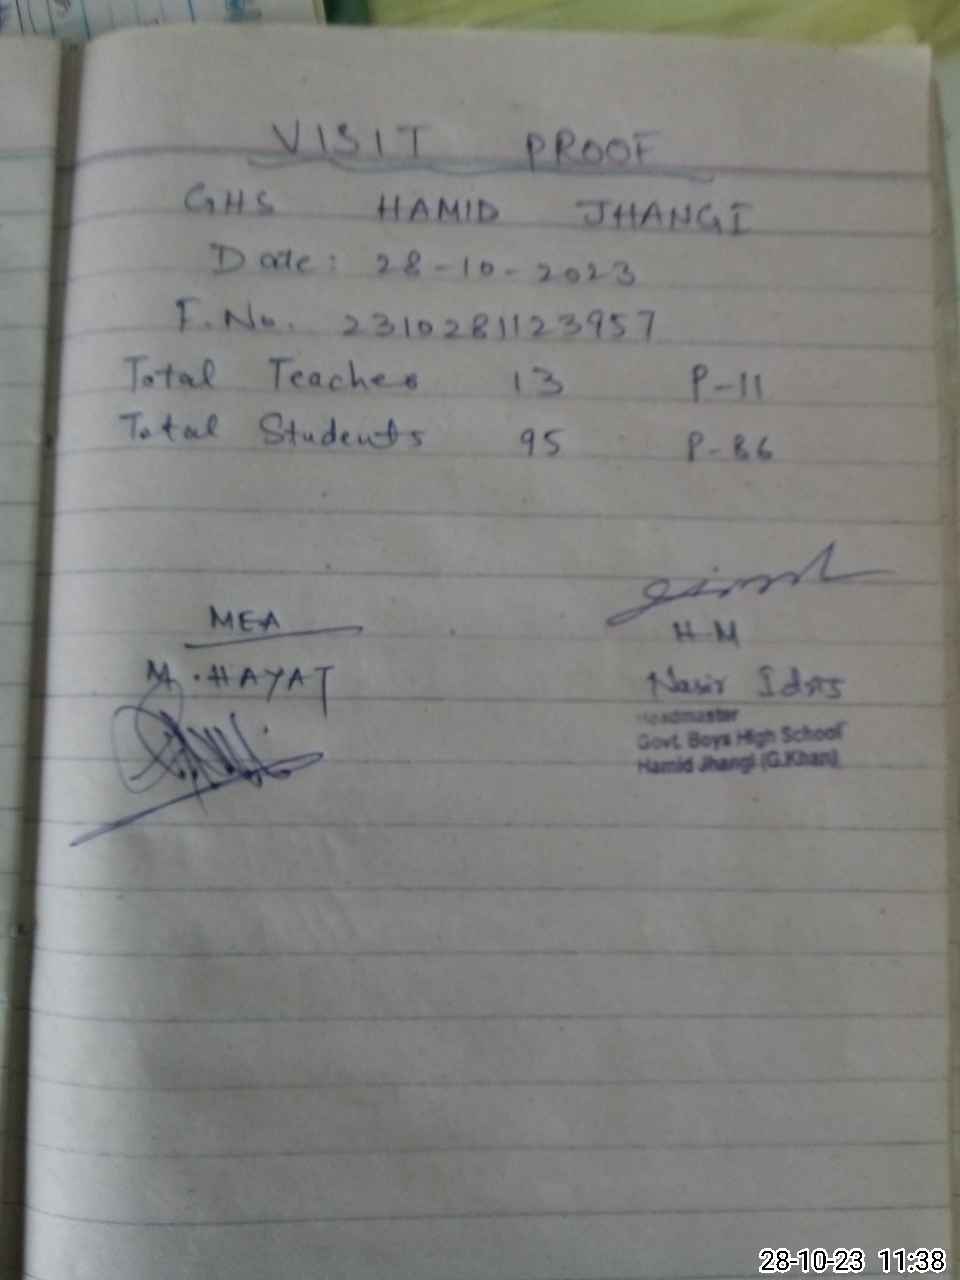 VISIT PROOF
GHS HAMID JHANGI
Date: 28-10-2023
F.No. 2310281123957
Total Teaches 13 P-11
Total Students 95 P-86
MEA
H-M
M.HAYAT
Nasir Idris
Headmaster
Govt. Boys High School
Hamid Jhangi (G.Khan)
28-10-23 11:38